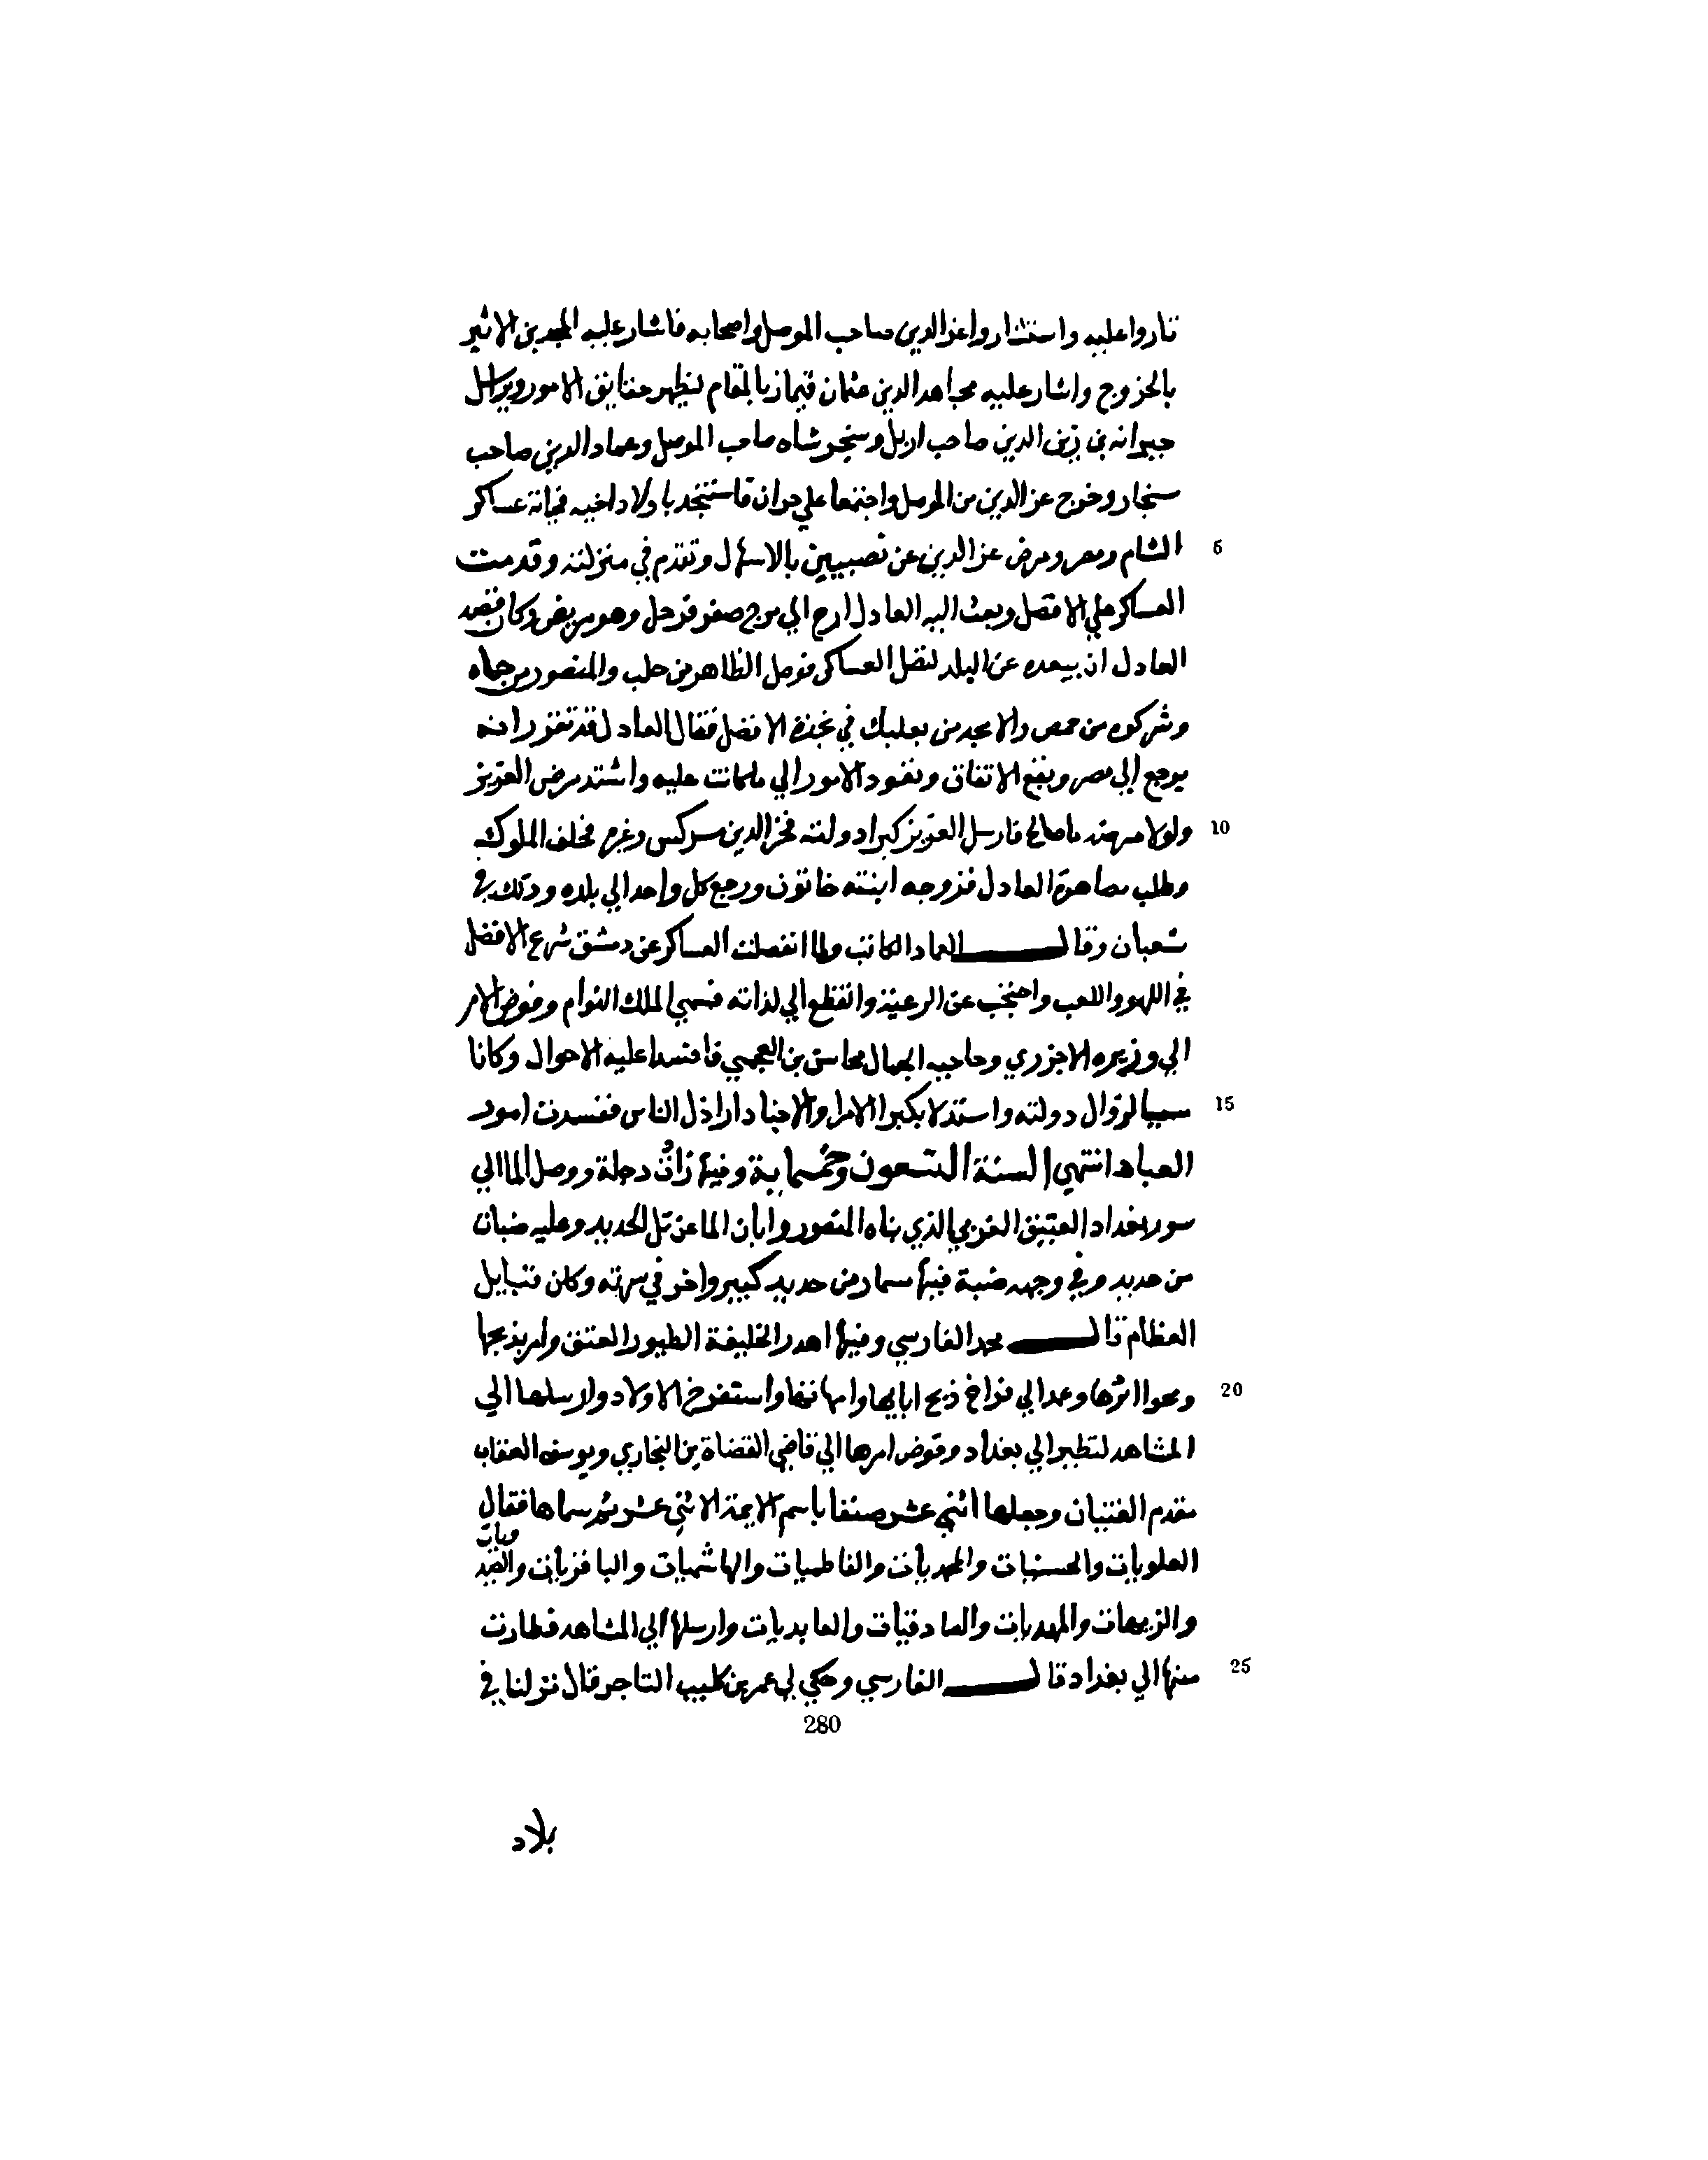 ثاروا عليه واستشاروا عز الدين صاحب الموصل واصحابه فاشار عليه المجد بن الاثير
بالخروج واشار عليه مجاهد الدين عثمان قيماز بالمقام لتظهر حقايق الامور ويراسل
جيرانه بن زين الدين صاحب اربل وسنجر شاه صاحب الموصل وعماد الدين صاحب
سنجار وخرج عز الدين من الموصل واجتمعا علي حران فاستنجد باولاد اخيه فجاته عساكر
5 الشام ومصر ومرض عز الدين عن نصيبين بالاسهال وتقدم في منزلته وقدمت
العساكر علي الافضل وبعث اليه العادل ارح الي مرج صفر فرحل وهو مريض وكان قصد
العادل ان يبعده عن البلد لتصل العساكر فوصل الظاهر من حلب والمنصور من حماه
وشركوه من حمص والامجد من بعلبك في نجدة الافضل فقال العادل قد تقرر انه
يرجع الي مصر ويقع الاتفاق وتعود الامور الي ما كانت عليه واشتد مرض العزيز
10 ولولا مرضه ما صالح فارسل العزيز كبرا دولته فخر الدين سركس وغيره فحلف الملوك
وطلب مصاهرة العادل فزوجه ابنته خاتون ورجع كل واحد الي بلده وذلك في
شعبان وقال العماد الكاتب ولما انفصلت العساكر عن دمشق شرع الافضل
في اللهو واللعب واحتجب عن الرعية وانقطع الي لذاته فسمي الملك النوام وفوض الامر
الي وزيره الجزري وحاجبه الجمال محاسن بن العجمي فافسدا عليه الاحوال وكانا
15 سببا لزوال دولته واستبدلا بكبرا الامرا والاجناد اراذل الناس ففسدت امور
العباد انتهي السنة التسعون وخمسماية وفيها زادت دجلة ووصل الما الي
سور بغداد العتيق الغربي الذي بناه المنصور وابان الما عن تل الحديد وعليه ضبات
من حديد وفي وجهه ضبة فيها مسمار من حديد كبير واخر في سرته وكان
العظام قال محمد الفارسي وفيها اهدر الخليفة الطيور العتق وامر بذبحها
20 ومحوا اثرها وعمد الي فراخ ذبح ابايها وامهاتها واستفرخ الاولاد وارسلها الي
المشاهد لتطير الي بغداد وفوض امرها الي قاضي القضاة بن البخاري ويوسف العقاب
مقدم الفتيان وجعلها اثني عشر صنفا باسم الايمة الاثني عشر ثم سماها فقال
العلويات والحسنيات والمحمديات والفاطميات والهاشميات والباقريات
والمهديات والصادقيات والعابديات وارسلها الي المشاهد فطارت
25 منها الي بغداد قال الفارسي وحكي لي عمر بن كليب التاجر قال نزلنا في
280
بلاد